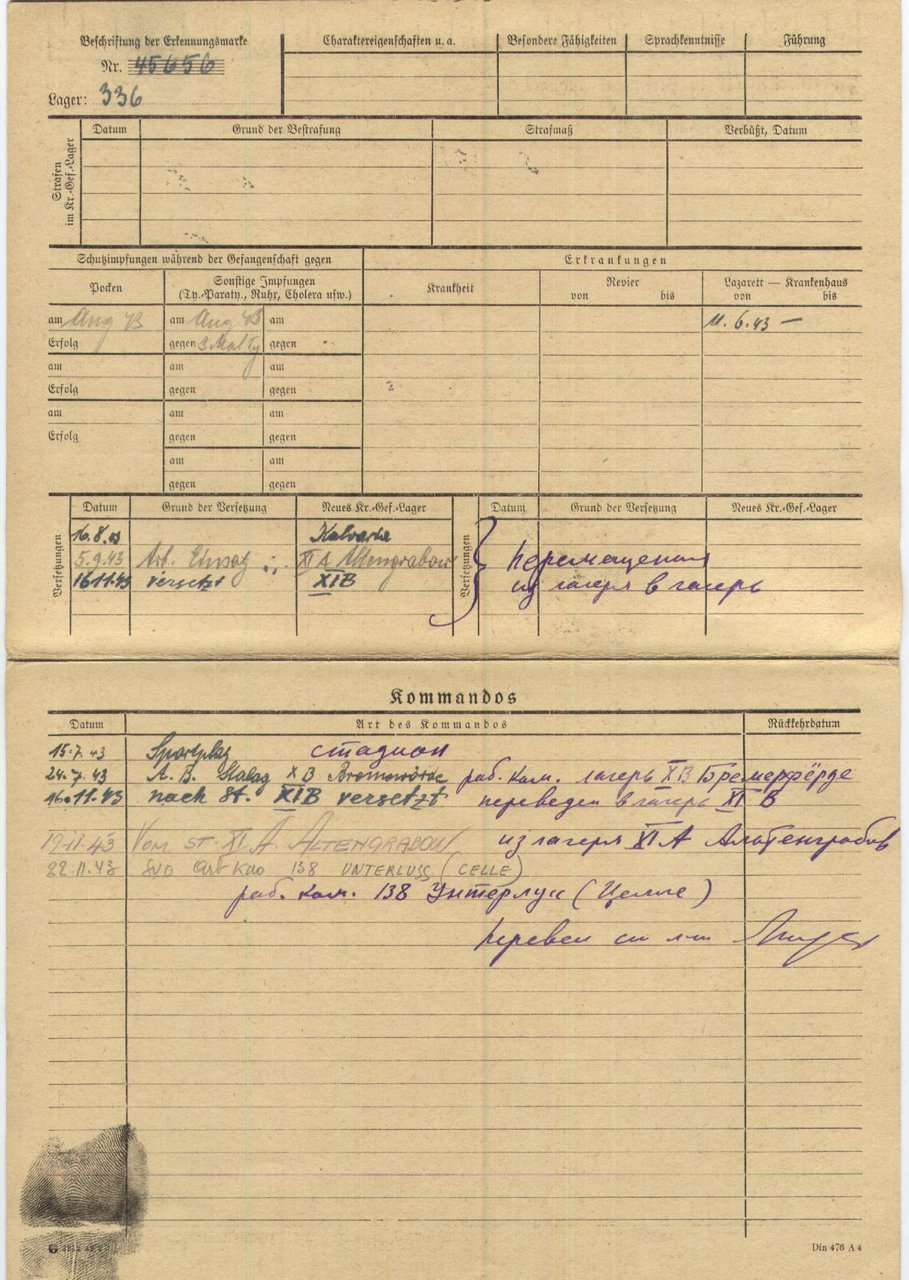 Beschriftung der Erkennungsmarke
Nr. 45656
Lager: 336
Charaktereigenschaften u. a.
Besondere Fähigkeiten
Sprachkenntnisse
Führung
Strafen im Kr.-Gef.-Lager
Datum
Grund der Bestrafung
Strafmaß
Verbüßt, Datum
Schutzimpfungen während der Gefangenschaft gegen
Erkrankungen
Pocken
Sonstige Impfungen
(Ty.-Paraty., Ruhr, Cholera usw.)
Krankheit
Revier
von bis
Lazarett — Krankenhaus
von bis
am Aug 43 am Aug 43 am
11. 6. 43 —
Erfolg gegen 3 Mal Ty gegen
am am am
Erfolg gegen gegen
am am am
Erfolg gegen gegen
am am
gegen gegen
Versetzungen
Datum Grund der Versetzung Neues Kr.-Gef.-Lager
16.8.43 Kalvaria
5.9.43 Arb. Einsatz XI A Altengrabow
16.11.43 versetzt XI B
Versetzungen
Datum Grund der Versetzung Neues Kr.-Gef.-Lager
перемещения
из лагеря в лагерь
Kommandos
Datum Art des Kommandos Rückkehrdatum
15.7.43 Sportplatz стадион
24.7.43 A. B. Stalag X B Bremervörde раб. ком. лагерь X B Бремерфёрде
16.11.43 nach St. XI B versetzt переведен в лагерь XI B
19.11.43 VOM ST. XI. A ALTENGRABOW из лагеря XI A Альтенграбов
22.11.43 138 UNTERLUSS (CELLE)
раб. ком. 138 Унтерлус (Целле)
Din 476 A 4